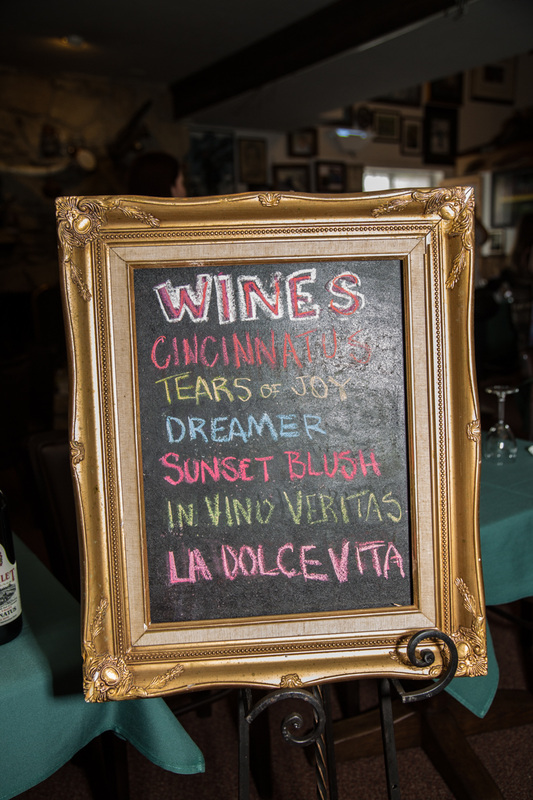 WINES
CINCINNATUS
TEARS OF JOY
DREAMER
SUNSET BLUSH
IN VINO VERITAS
LA DOLCE VITA